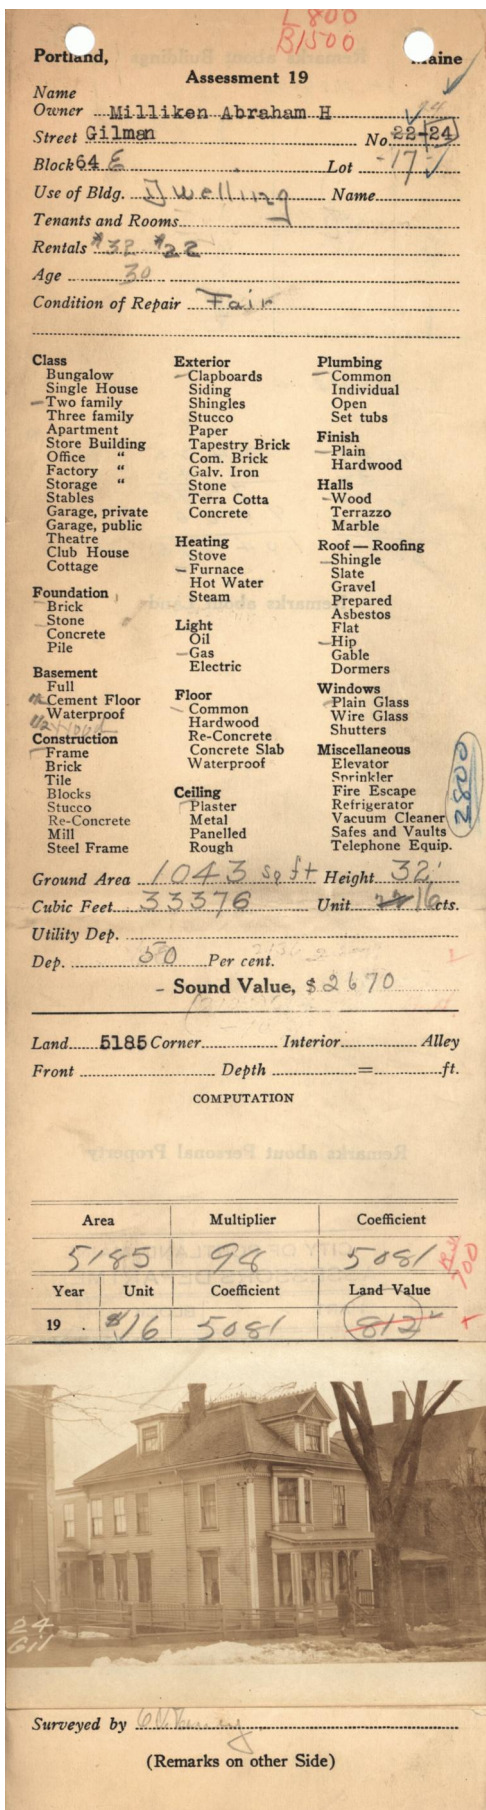 L 800
B1500
Portland, Maine
Assessment 19
Name
Owner Milliken Abraham H
Street Gilman No. 22-24
Block 64 E Lot -17-
Use of Bldg. Dwelling Name
Tenants and Rooms
Rentals $32 $22
Age 30
Condition of Repair Fair
Class
Bungalow
Single House
Two family
Three family
Apartment
Store Building
Office "
Factory "
Storage "
Stables
Garage, private
Garage, public
Theatre
Club House
Cottage
Foundation
Brick
Stone
Concrete
Pile
Basement
Full
1/2 Cement Floor
Waterproof
1/2
Construction
Frame
Brick
Tile
Blocks
Stucco
Re-Concrete
Mill
Steel Frame
Exterior
Clapboards
Siding
Shingles
Stucco
Paper
Tapestry Brick
Com. Brick
Galv. Iron
Stone
Terra Cotta
Concrete
Heating
Stove
Furnace
Hot Water
Steam
Light
Oil
Gas
Electric
Floor
Common
Hardwood
Re-Concrete
Concrete Slab
Waterproof
Ceiling
Plaster
Metal
Panelled
Rough
Plumbing
Common
Individual
Open
Set tubs
Finish
Plain
Hardwood
Halls
Wood
Terrazzo
Marble
Roof — Roofing
Shingle
Slate
Gravel
Prepared
Asbestos
Flat
Hip
Gable
Dormers
Windows
Plain Glass
Wire Glass
Shutters
Miscellaneous
Elevator
Sprinkler
Fire Escape
Refrigerator
Vacuum Cleaner
Safes and Vaults
Telephone Equip.
2800
Ground Area 1043 sq ft Height 32'
Cubic Feet 33376 Unit 16 cts.
Utility Dep.
Dep. 50 Per cent.
- Sound Value, $ 2670
Land 5185 Corner Interior Alley
Front Depth = ft.
COMPUTATION
Area Multiplier Coefficient
5185 98 5081
700
Year Unit Coefficient Land Value
19 . $16 5081 812
24
Gil
Surveyed by
(Remarks on other Side)